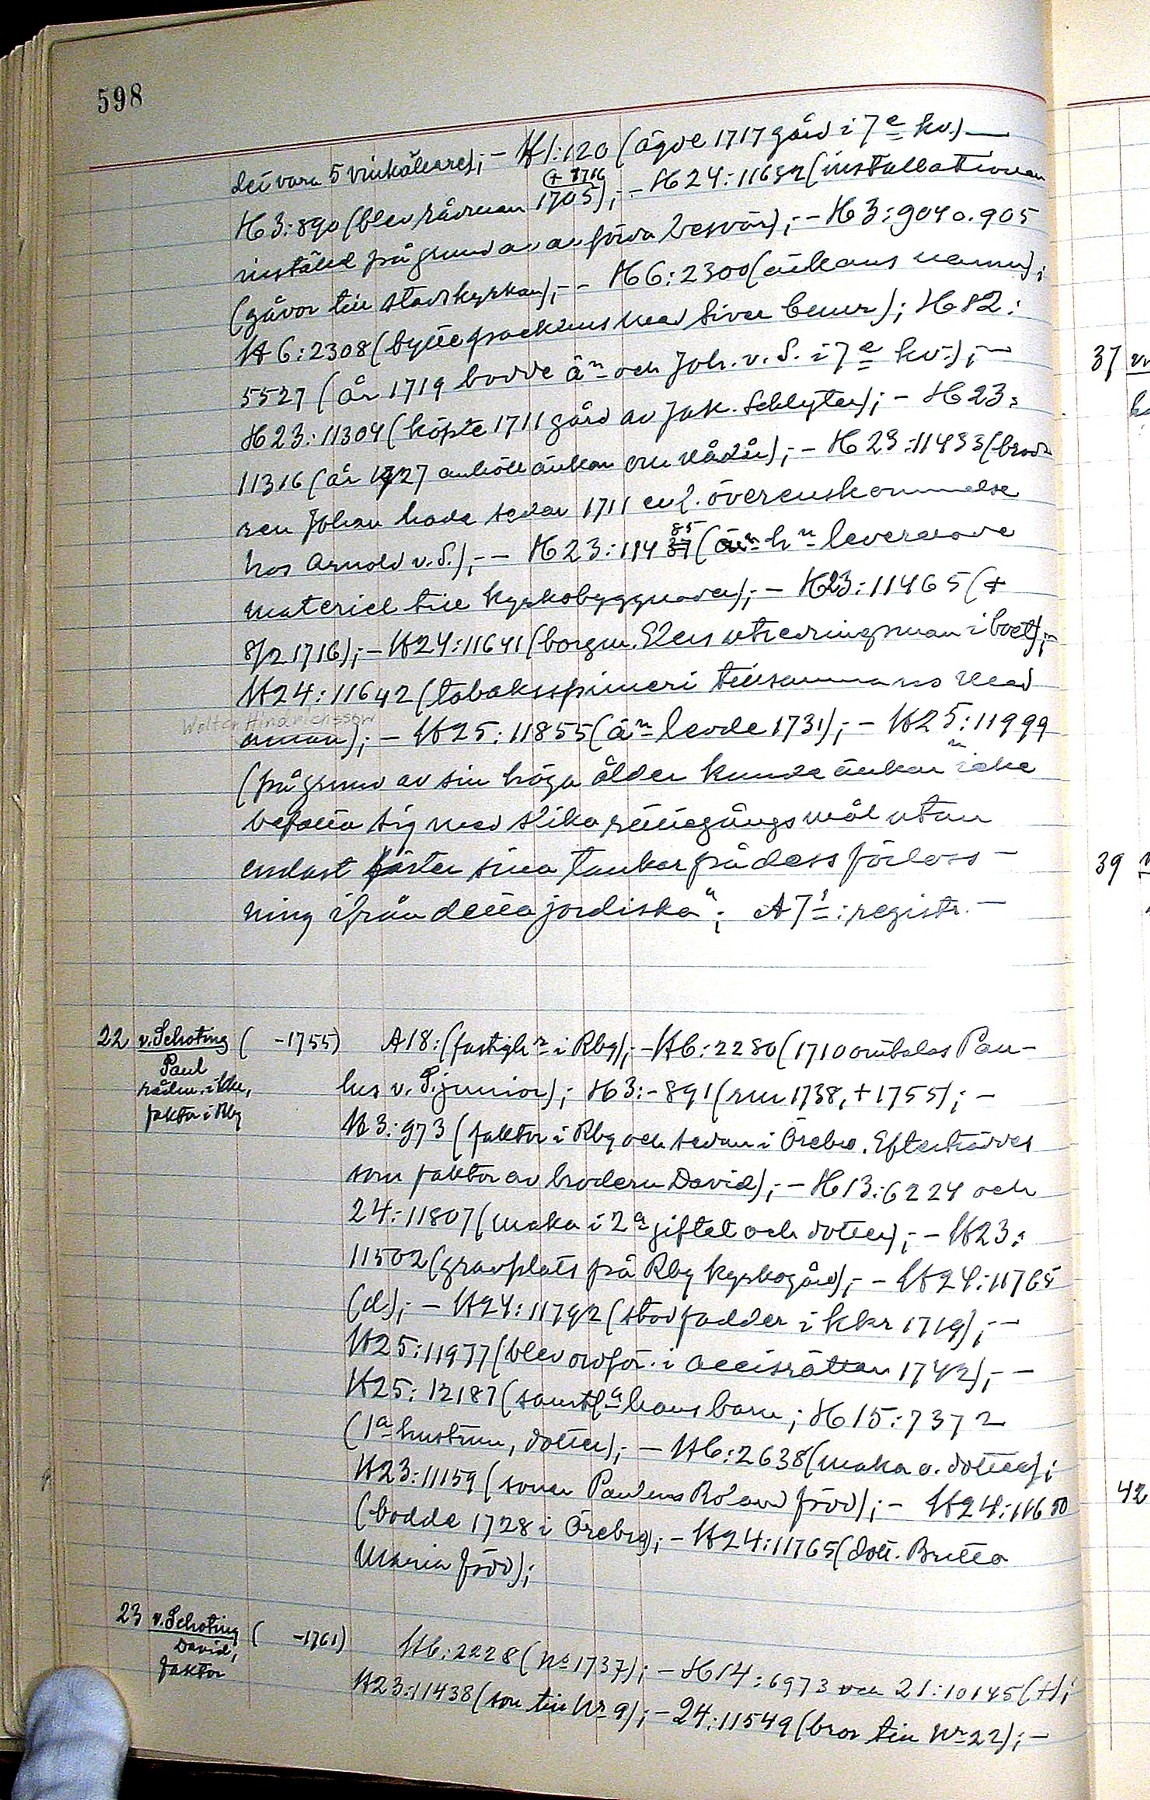 598
det vara 5 vinkällare); - H1:120 (ägde 1717 gård i 7e kv.) —
H3:890 (blev rådman 1705 (+ 1716)); - H24:11652 (installationen
inställd på grund av a. förda besvär); - H3:904 o. 905
(gåvor till stadskyrkan); - H6:2300 (änkans namn);
H6:2308 (bytte med Siver Benur); H82:
5527 (år 1719 bodde än och Joh. v. S. i 7e kv.); -
H23:11304 (köpte 1711 gård av Jak. Schlyter); - H23:
11316 (år 1727 anhöll änkan om nådår); - H23:11433 (brod-
ren Johan hade sedan 1711 enl. överenskommelse
hos Arnold v. S.); - H23:11485 (hn levererade
materiel till kyrkobyggnaden); - H23:11465 (+
8/2 1716); - H24:11641 (borgm. Elers utredningsman i boet); -
H24:11642 (tobaksspinneri tillsammans med
Wolter Hindrichsson
annan); - H25:11855 (än levde 1731); - H25:11999
(på grund av sin höga ålder kunde änkan "icke
befatta sig med slika rättegångsmål utan
endast fäster sina tankar på dess förloss-
ning ifrån detta jordiska"; A71: registr. -
22 v. Schoting ( -1755) A18: (fastighr i Rbg); - H6:2280 (1710 omtalas Pau-
Paul
rådm. i kkr,
faktor i Rbg
lus v. S. junior); H3:-891 (rm 1738, + 1755); -
H3:973 (faktor i Rbg och sedan i Örebro. Efterträddes
som faktor av brodern David); - H13:6224 och
24:11807 (maka i 2a giftet och dotter); - H23:
11502 (gravplats på Rbg kyrkogård); - H24:11765
(d:o); - H24:11792 (stod fadder i kkr 1719); -
H25:11977 (blev ordför. i accisrätten 1742); -
H25:12187 (samtla hans barn; H15:7372
(1a hustrun, dotter); - H6:2638 (maka o. dotter);
H23:11159 (sonen Paulus Roland född); - H24:11650
(bodde 1728 i Örebro); - H24:11765 (dott. Britta
Maria född);
23 v. Schoting ( -1761) H6:2228 (No 1737); - H14:6973 och 21:10145 (+);
David,
faktor
H23:11438 (son till Nr 9); - 24:11549 (bror till Nr 22); -
37
39
42